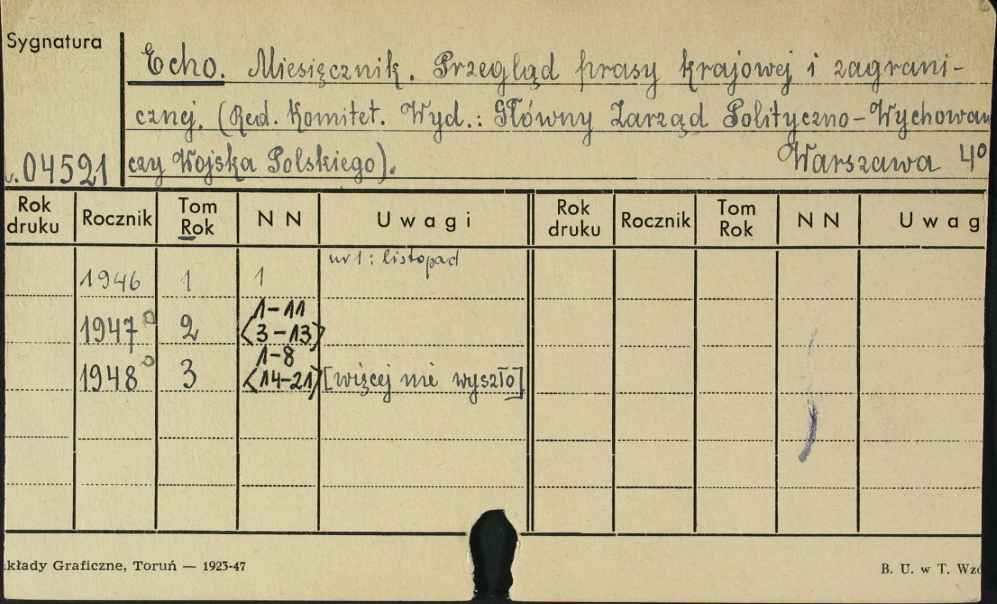 Sygnatura
Echo. Miesięcznik. Przegląd prasy krajowej i zagrani-
cznej. (Red. Komitet. Wyd.: Główny Zarząd Polityczno-Wychowaw
czy Wojska Polskiego). Warszawa 4°
04521
Rok druku Rocznik Tom Rok N N Uwagi Rok druku Rocznik Tom Rok N N Uwag
nr 1: listopad
1946 1 1
1-11
1947 2 <3-13>
1-8
1948 3 <14-21> [więcej nie wyszło]
kłady Graficzne, Toruń — 1923-47 B. U. w T. Wzó